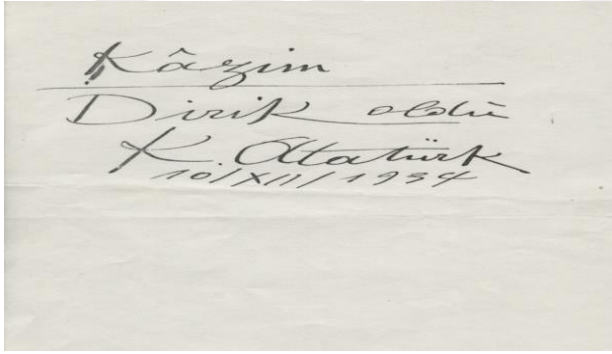 Kâzim
Dirik oldu
K. Atatürk
10/XII/1934